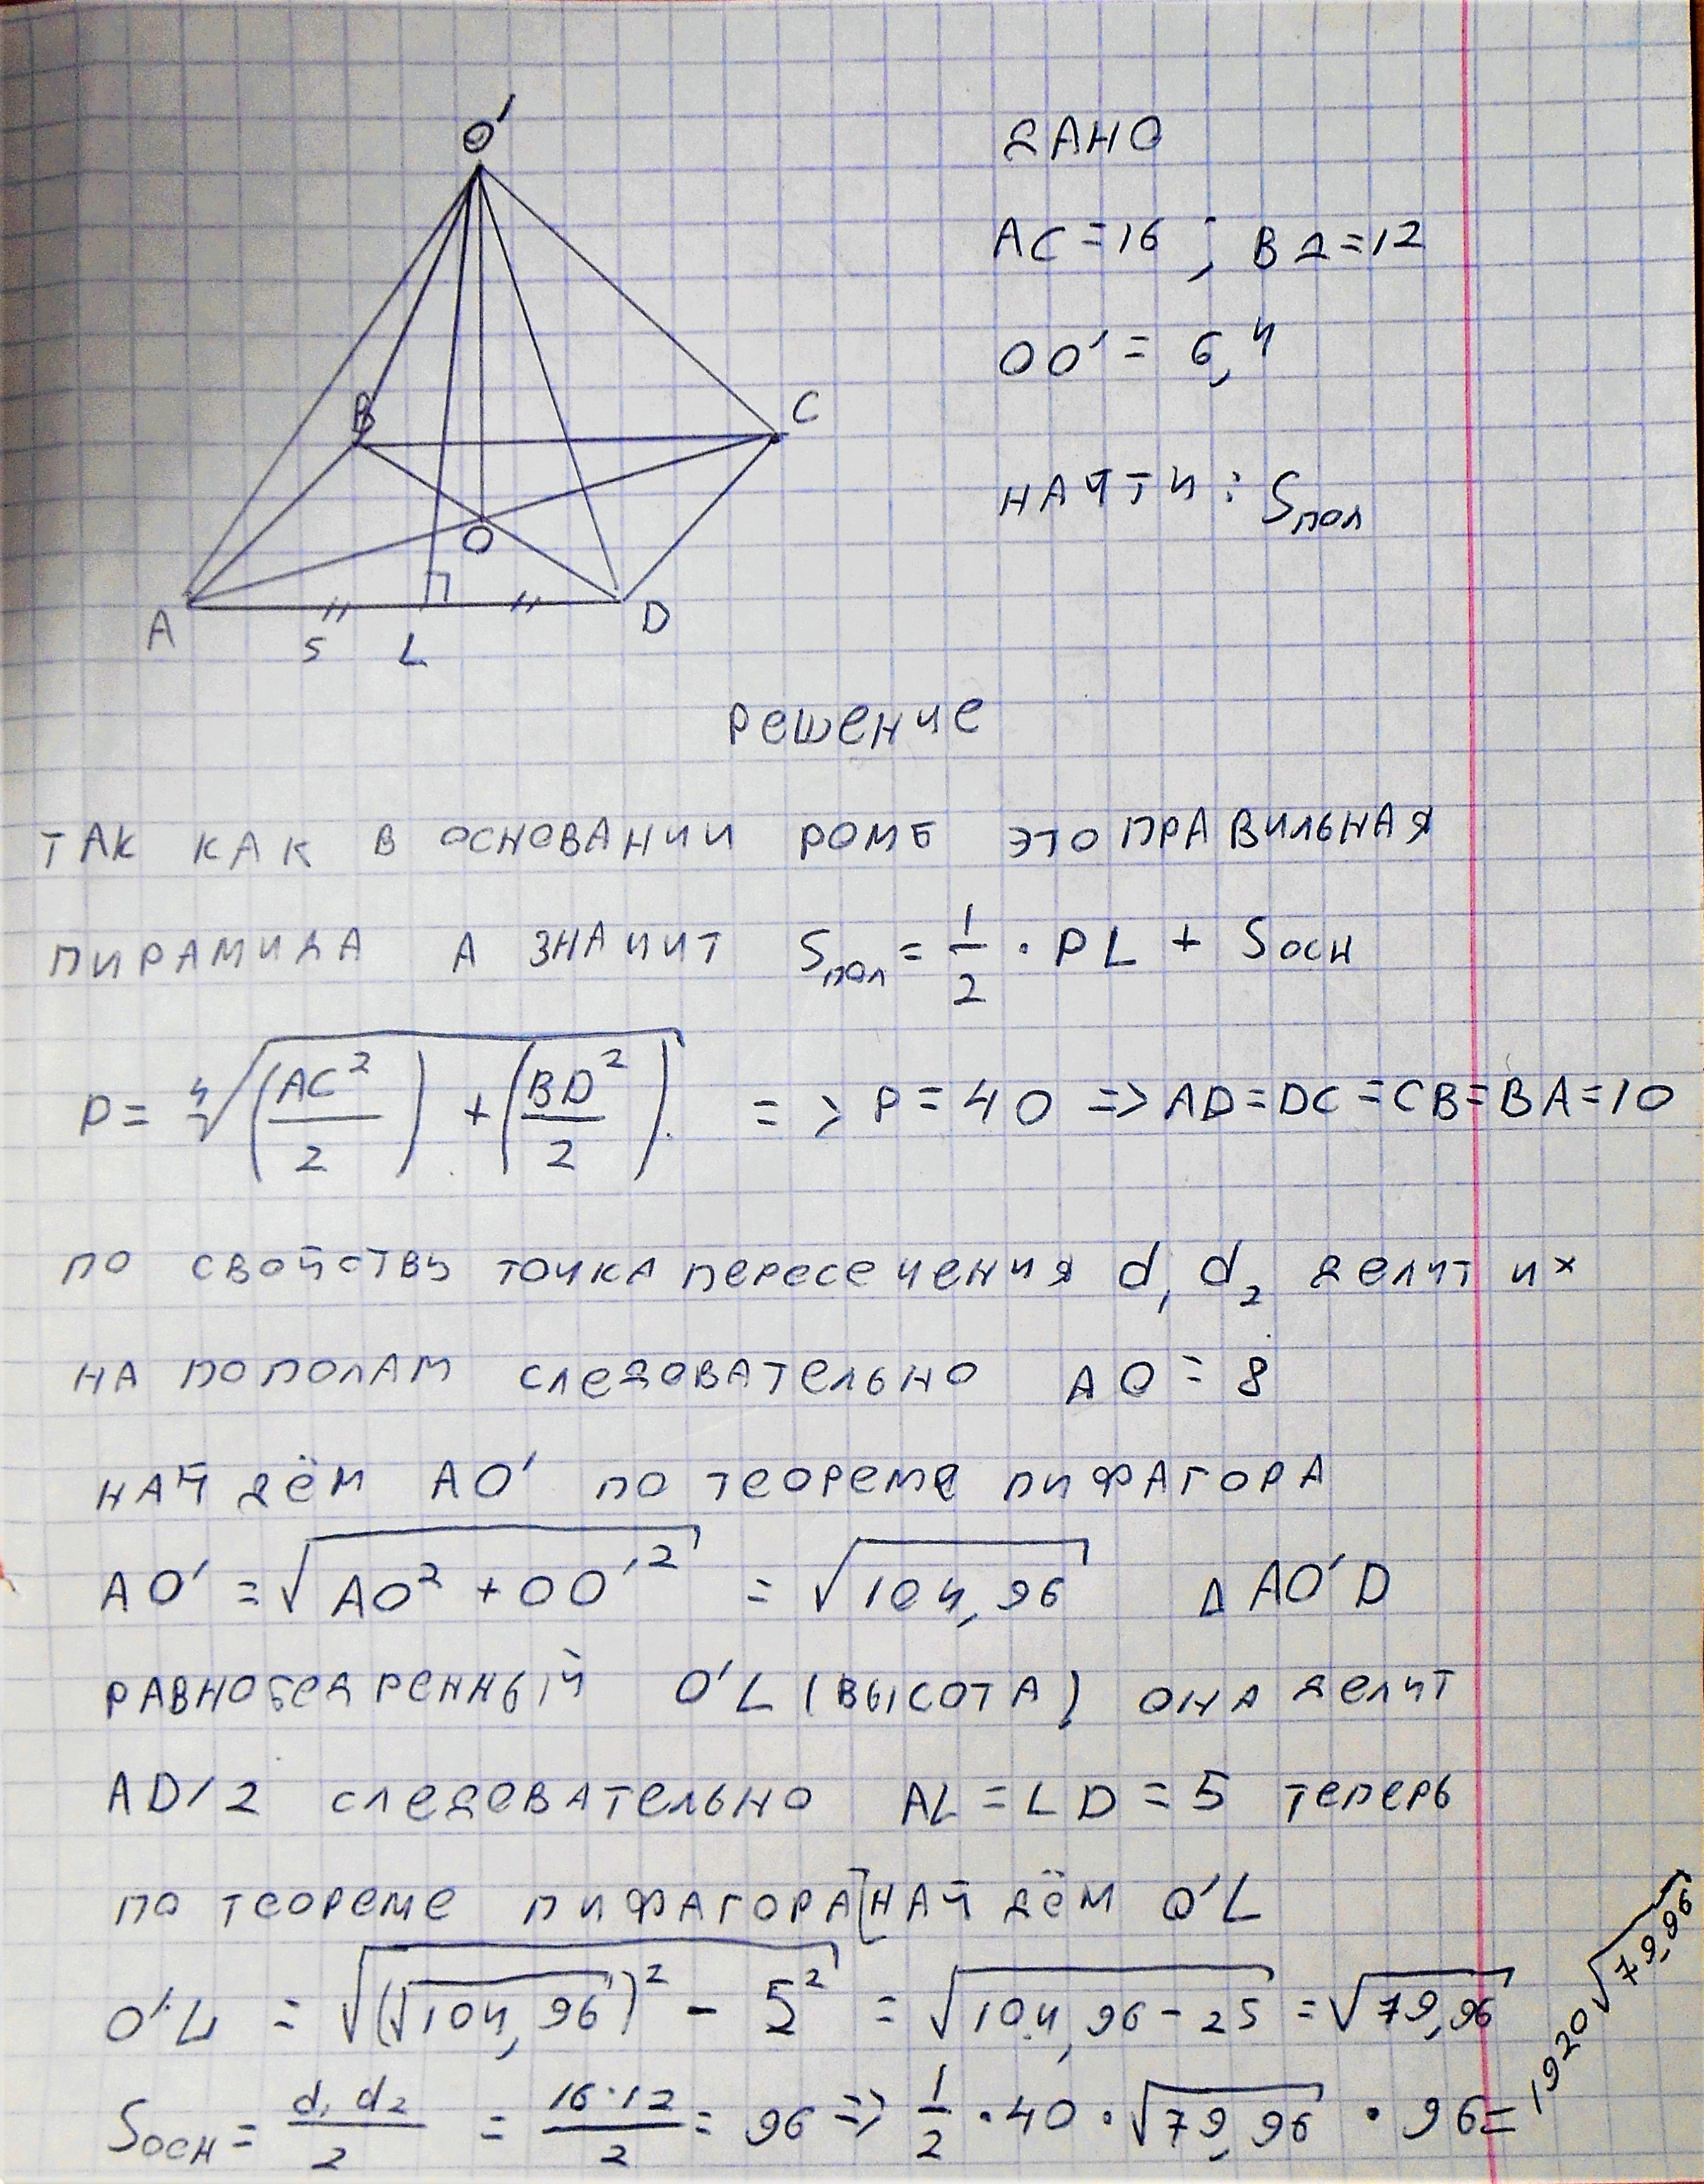 O'
ДАНО
AC = 16 ; BД = 12
OO' = 6,4
НАЙТИ : Sпол
B
C
O
A
D
5
L
Решение
ТАК КАК В ОСНОВАНИИ РОМБ ЭТО ПРАВИЛЬНАЯ
ПИРАМИДА А ЗНАЧИТ Sпол = 1/2 · PL + Sосн
P = 4√(AC²/2) + (BD²/2) => P = 40 => AD = DC = CB = BA = 10
ПО СВОЙСТВУ ТОЧКА ПЕРЕСЕЧЕНИЯ d₁ d₂ ДЕЛИТ ИХ
НА ПОПОЛАМ СЛЕДОВАТЕЛЬНО AO = 8
НАЙДЁМ AO' ПО ТЕОРЕМЕ ПИФАГОРА
AO' = √AO² + OO'² = √104,96 Δ AO'D
РАВНОБЕДРЕННЫЙ O'L (ВЫСОТА) ОНА ДЕЛИТ
AD/2 СЛЕДОВАТЕЛЬНО AL = LD = 5 ТЕПЕРЬ
ПО ТЕОРЕМЕ ПИФАГОРА НАЙДЁМ O'L
O'L = √(√104,96)² - 5² = √104,96 - 25 = √79,96
Sосн = d₁ d₂/2 = 16·12/2 = 96 => 1/2 · 40 · √79,96 · 96 = 1920√79,96